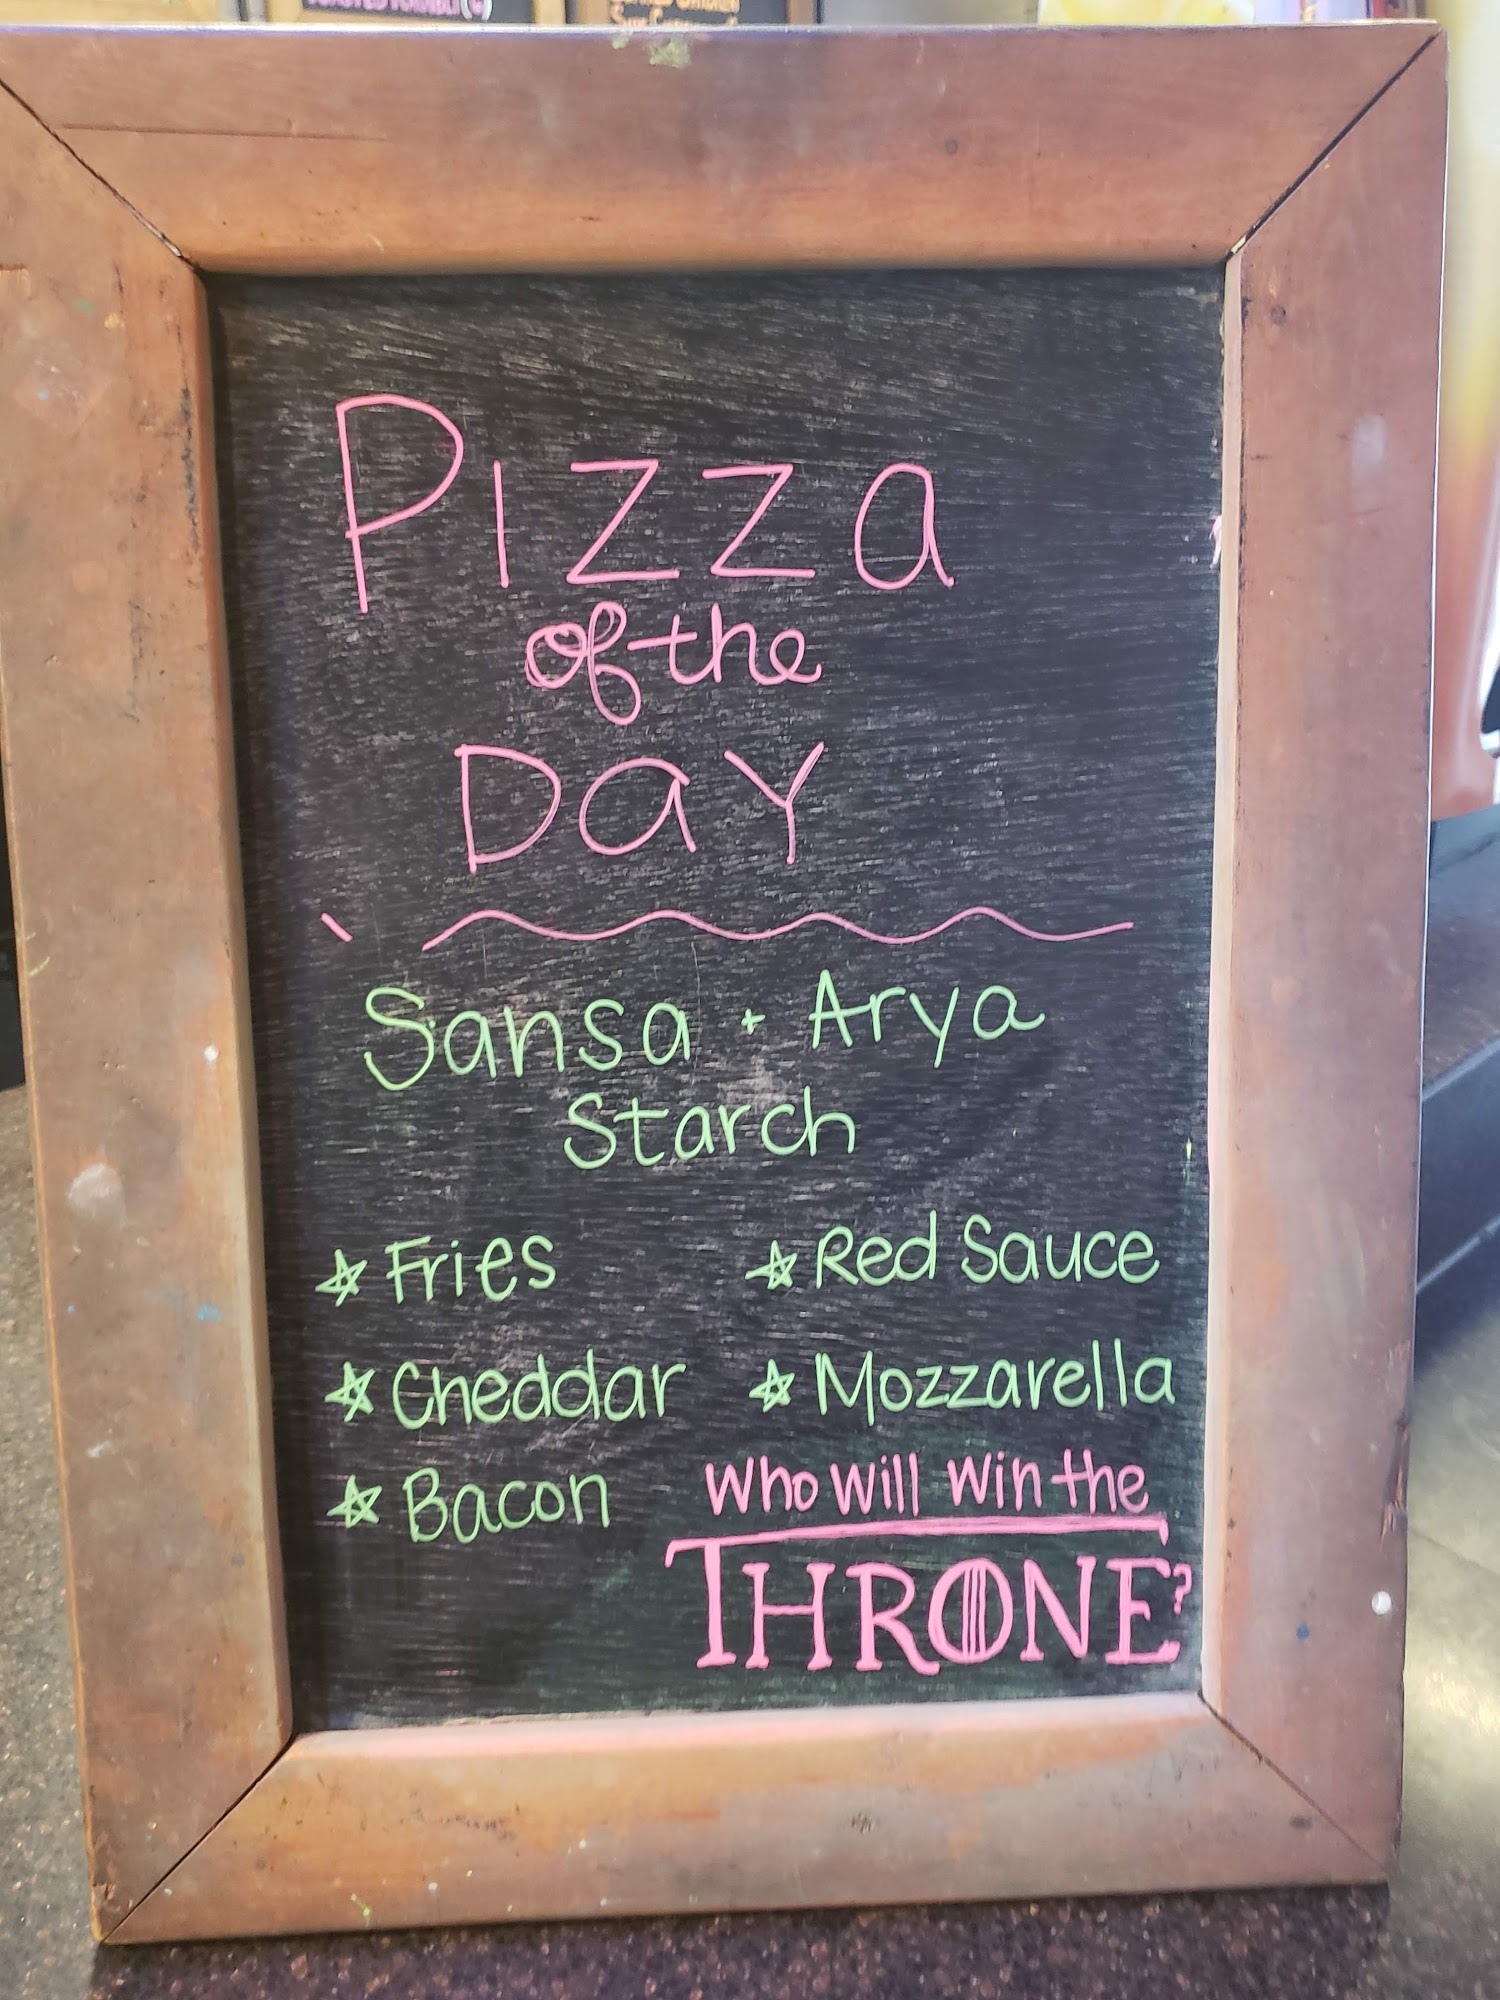 Pizza
of the
Day
Sansa + Arya
Starch
Fries
Red Sauce
Cheddar
Mozzarella
Bacon
Who Will Win the
THRONE?